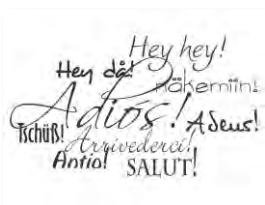 Hey hey!
Hey då!
näkemiin!
Adiós!
Adeus!
Tschüß!
Arrivederci!
Antio!
SALUT!